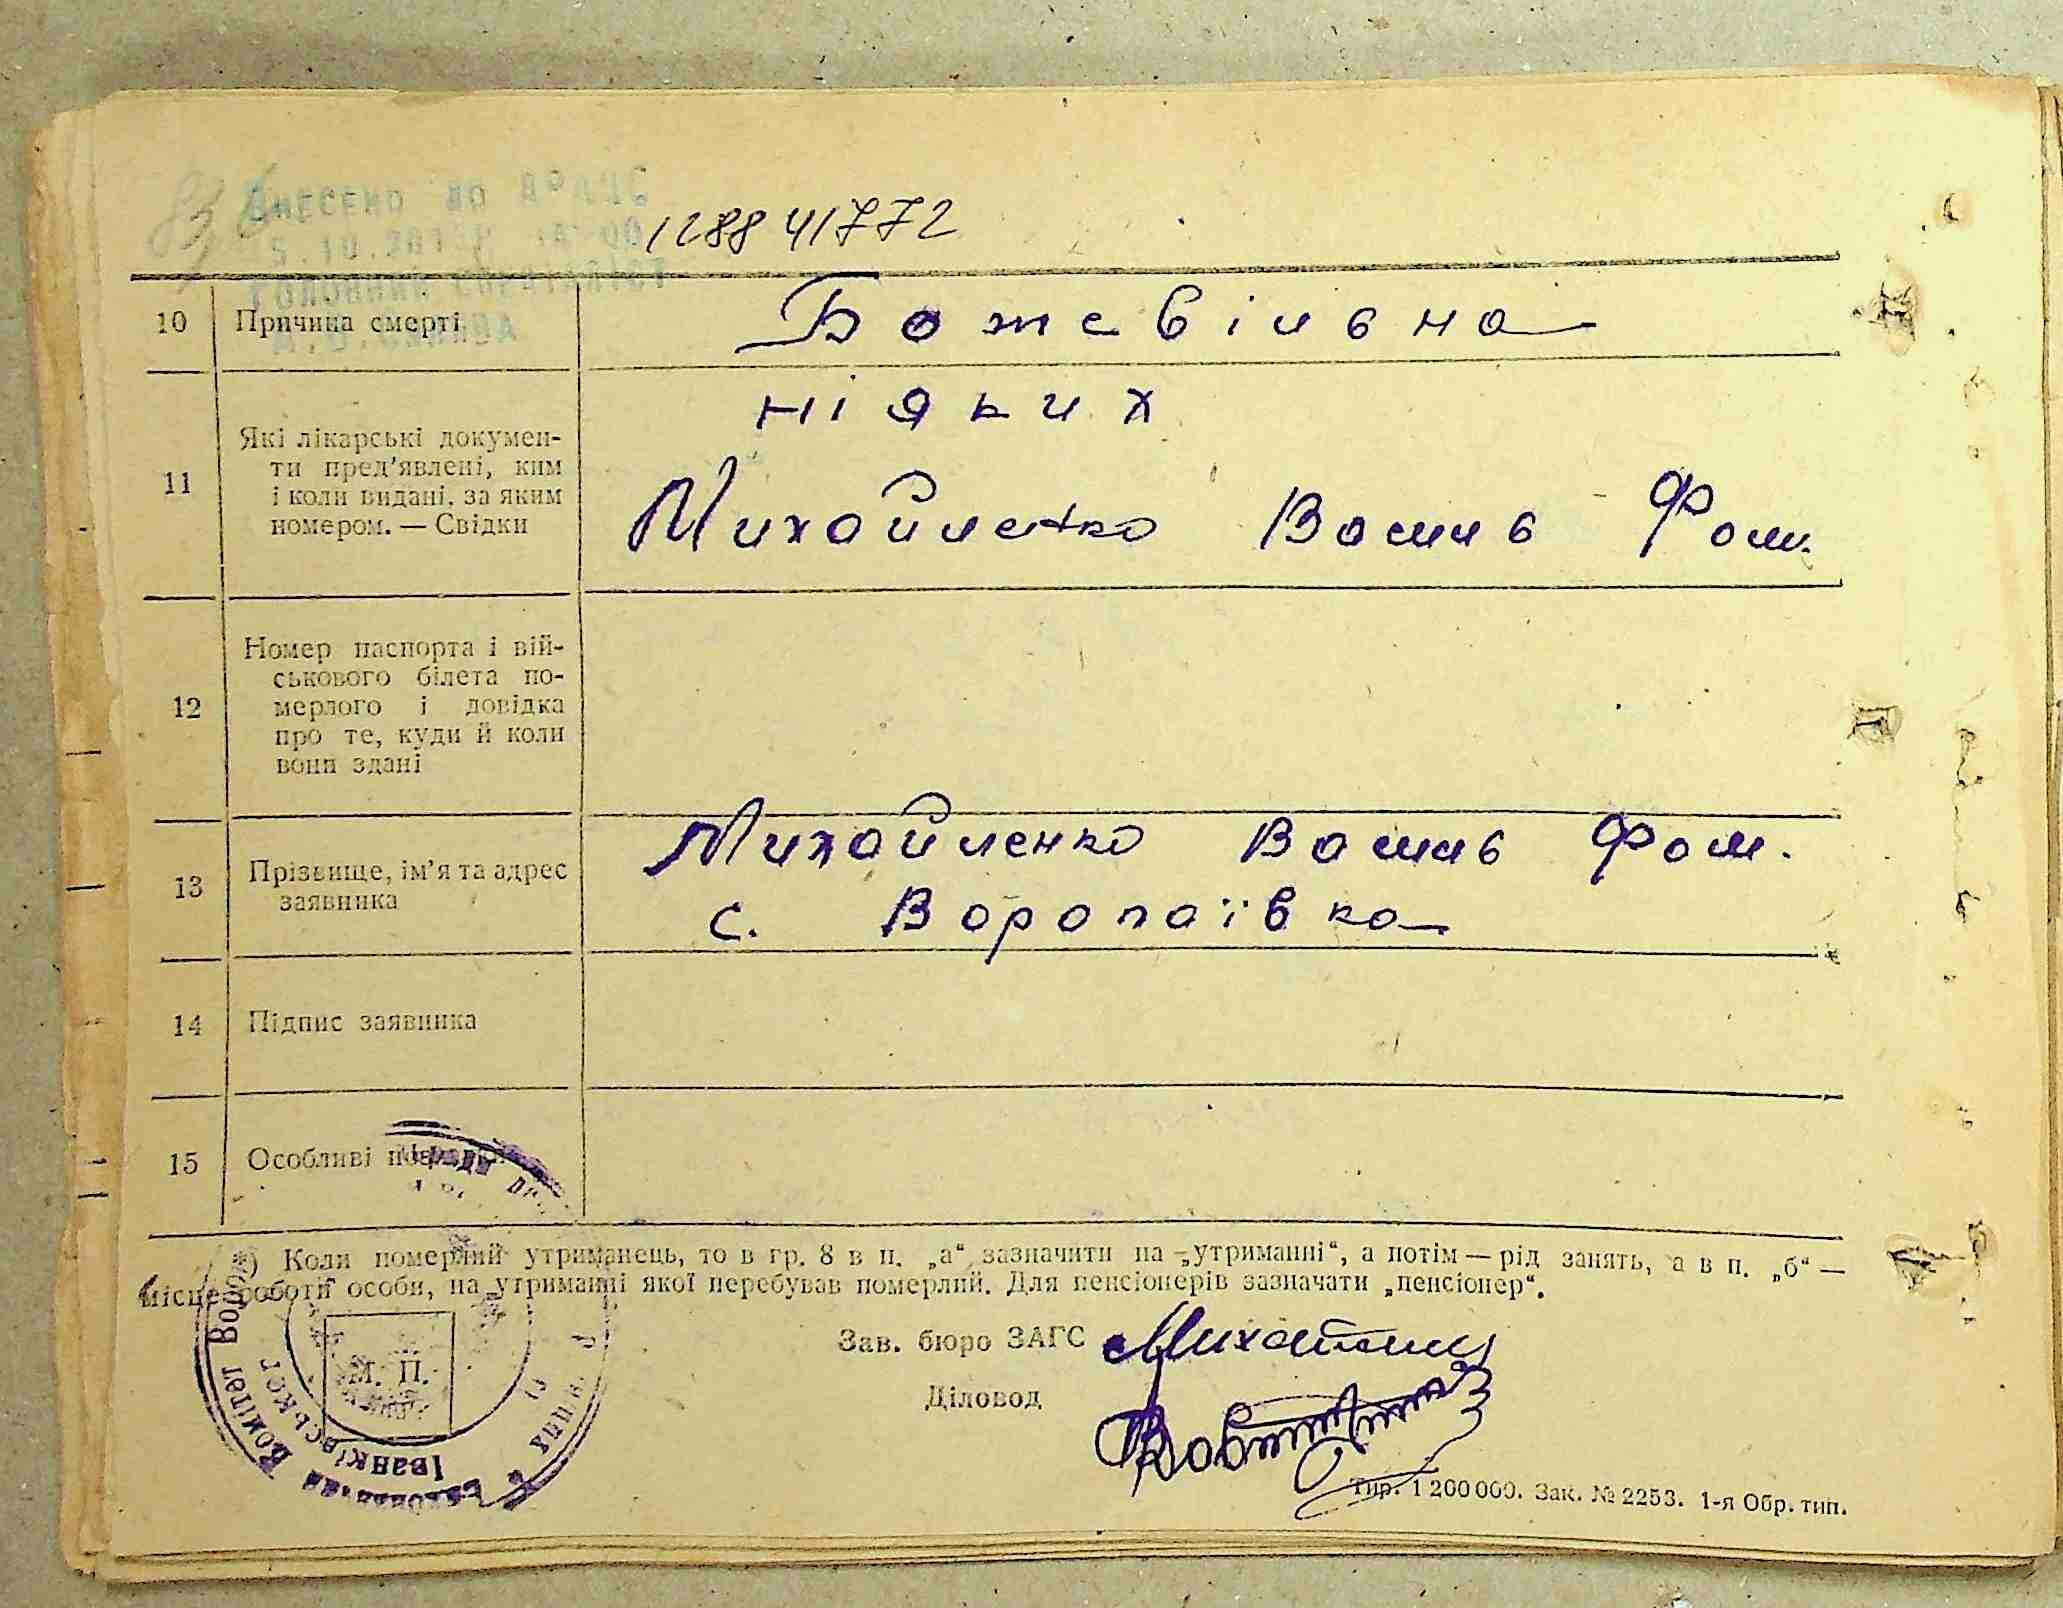 ВНЕСЕНО ДО ДРАЦС
128841772
ГОЛОВНИЙ СПЕЦІАЛІСТ
10 Причина смерті Божевільна
11 Які лікарські докумен-
ти пред'явлені, ким
і коли видані, за яким
номером. — Свідки
ніяких
Михайленко Василь Фом.
12 Номер паспорта і вій-
ськового білета по-
мерлого і довідка
про те, куди й коли
вони здані
13 Прізвище, ім'я та адрес
заявника
Михайленко Василь Фом.
с. Воропаївка
14 Підпис заявника
15 Особливі
*) Коли померлий утриманець, то в гр. 8 в п. „а" зазначити на „утриманні", а потім — рід занять, а в п. „б" —
місце роботи особи, на утриманні якої перебував померлий. Для пенсіонерів зазначати „пенсіонер".
Зав. бюро ЗАГС
Діловод
М. П.
Комітет Ворон
Іванківської
Тир. 1 200 000. Зак. № 2253. 1-я Обр. тип.